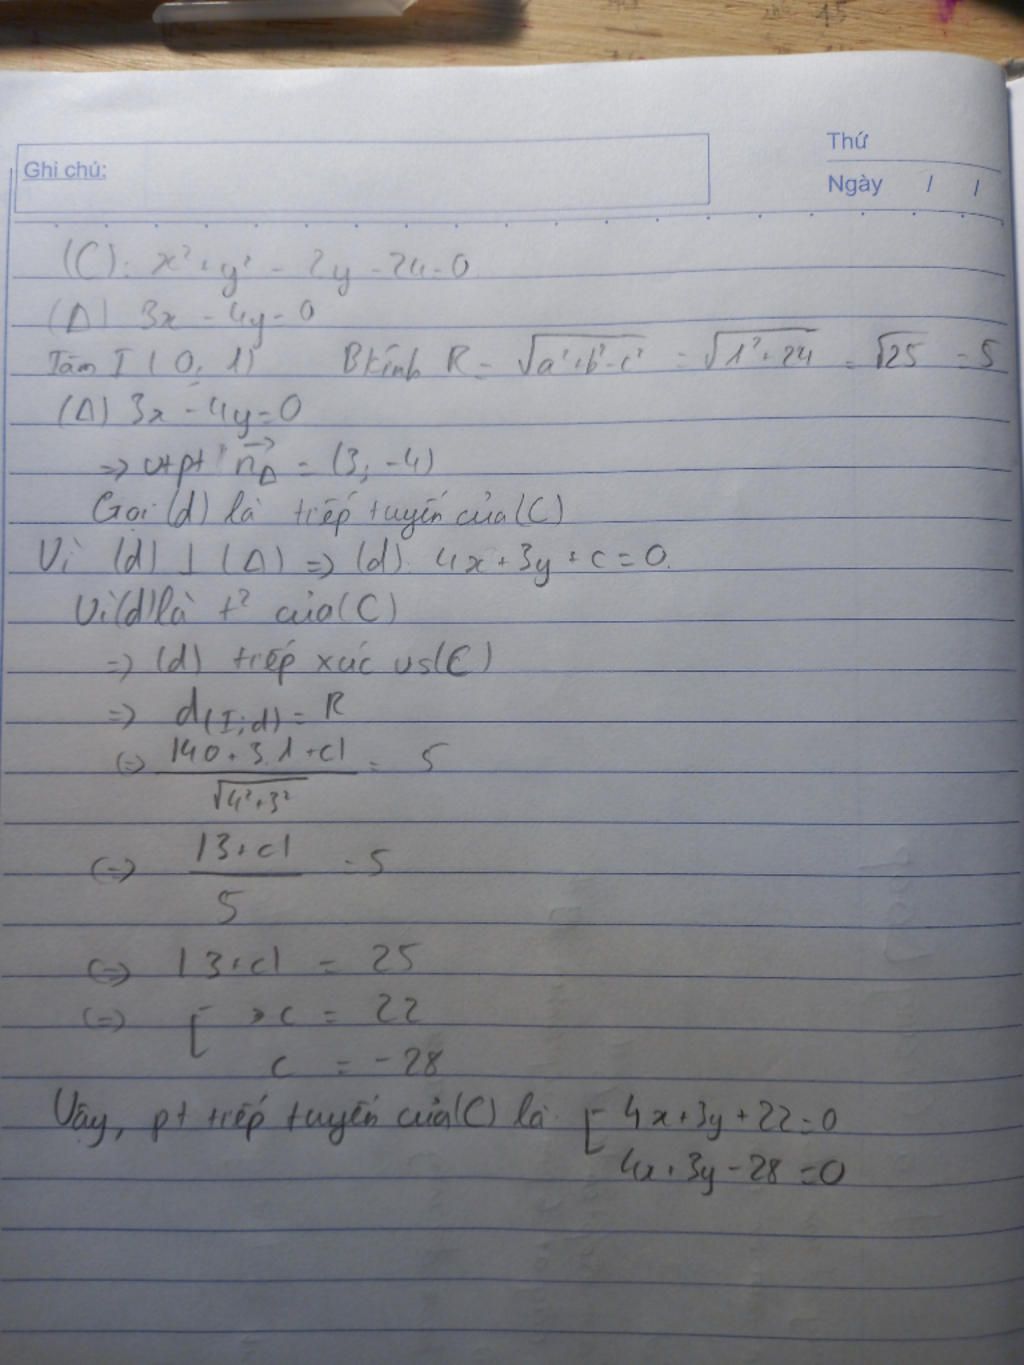 Thứ
Ghi chú:
Ngày / /
(C): x² + y² - 2y - 24 = 0
(Δ) 3x - 4y = 0
Tâm I (0; 1) Bkính R = √a²+b²-c² = √1²+24 = √25 = 5
(Δ) 3x - 4y = 0
=> vtpt n⃗Δ = (3; -4)
Gọi (d) là tiếp tuyến của (C)
Vì (d) ⊥ (Δ) => (d): 4x + 3y + c = 0.
Vì (d) là t² của (C)
=> (d) tiếp xúc vs (C)
=> d(I;d) = R
(=) |4.0 + 3.1 + c| / √4²+3² = 5
(=) |3+c| / 5 = 5
(=) |3+c| = 25
(=) [ c = 22
c = -28
Vậy, pt tiếp tuyến của (C) là [ 4x + 3y + 22 = 0
4x + 3y - 28 = 0